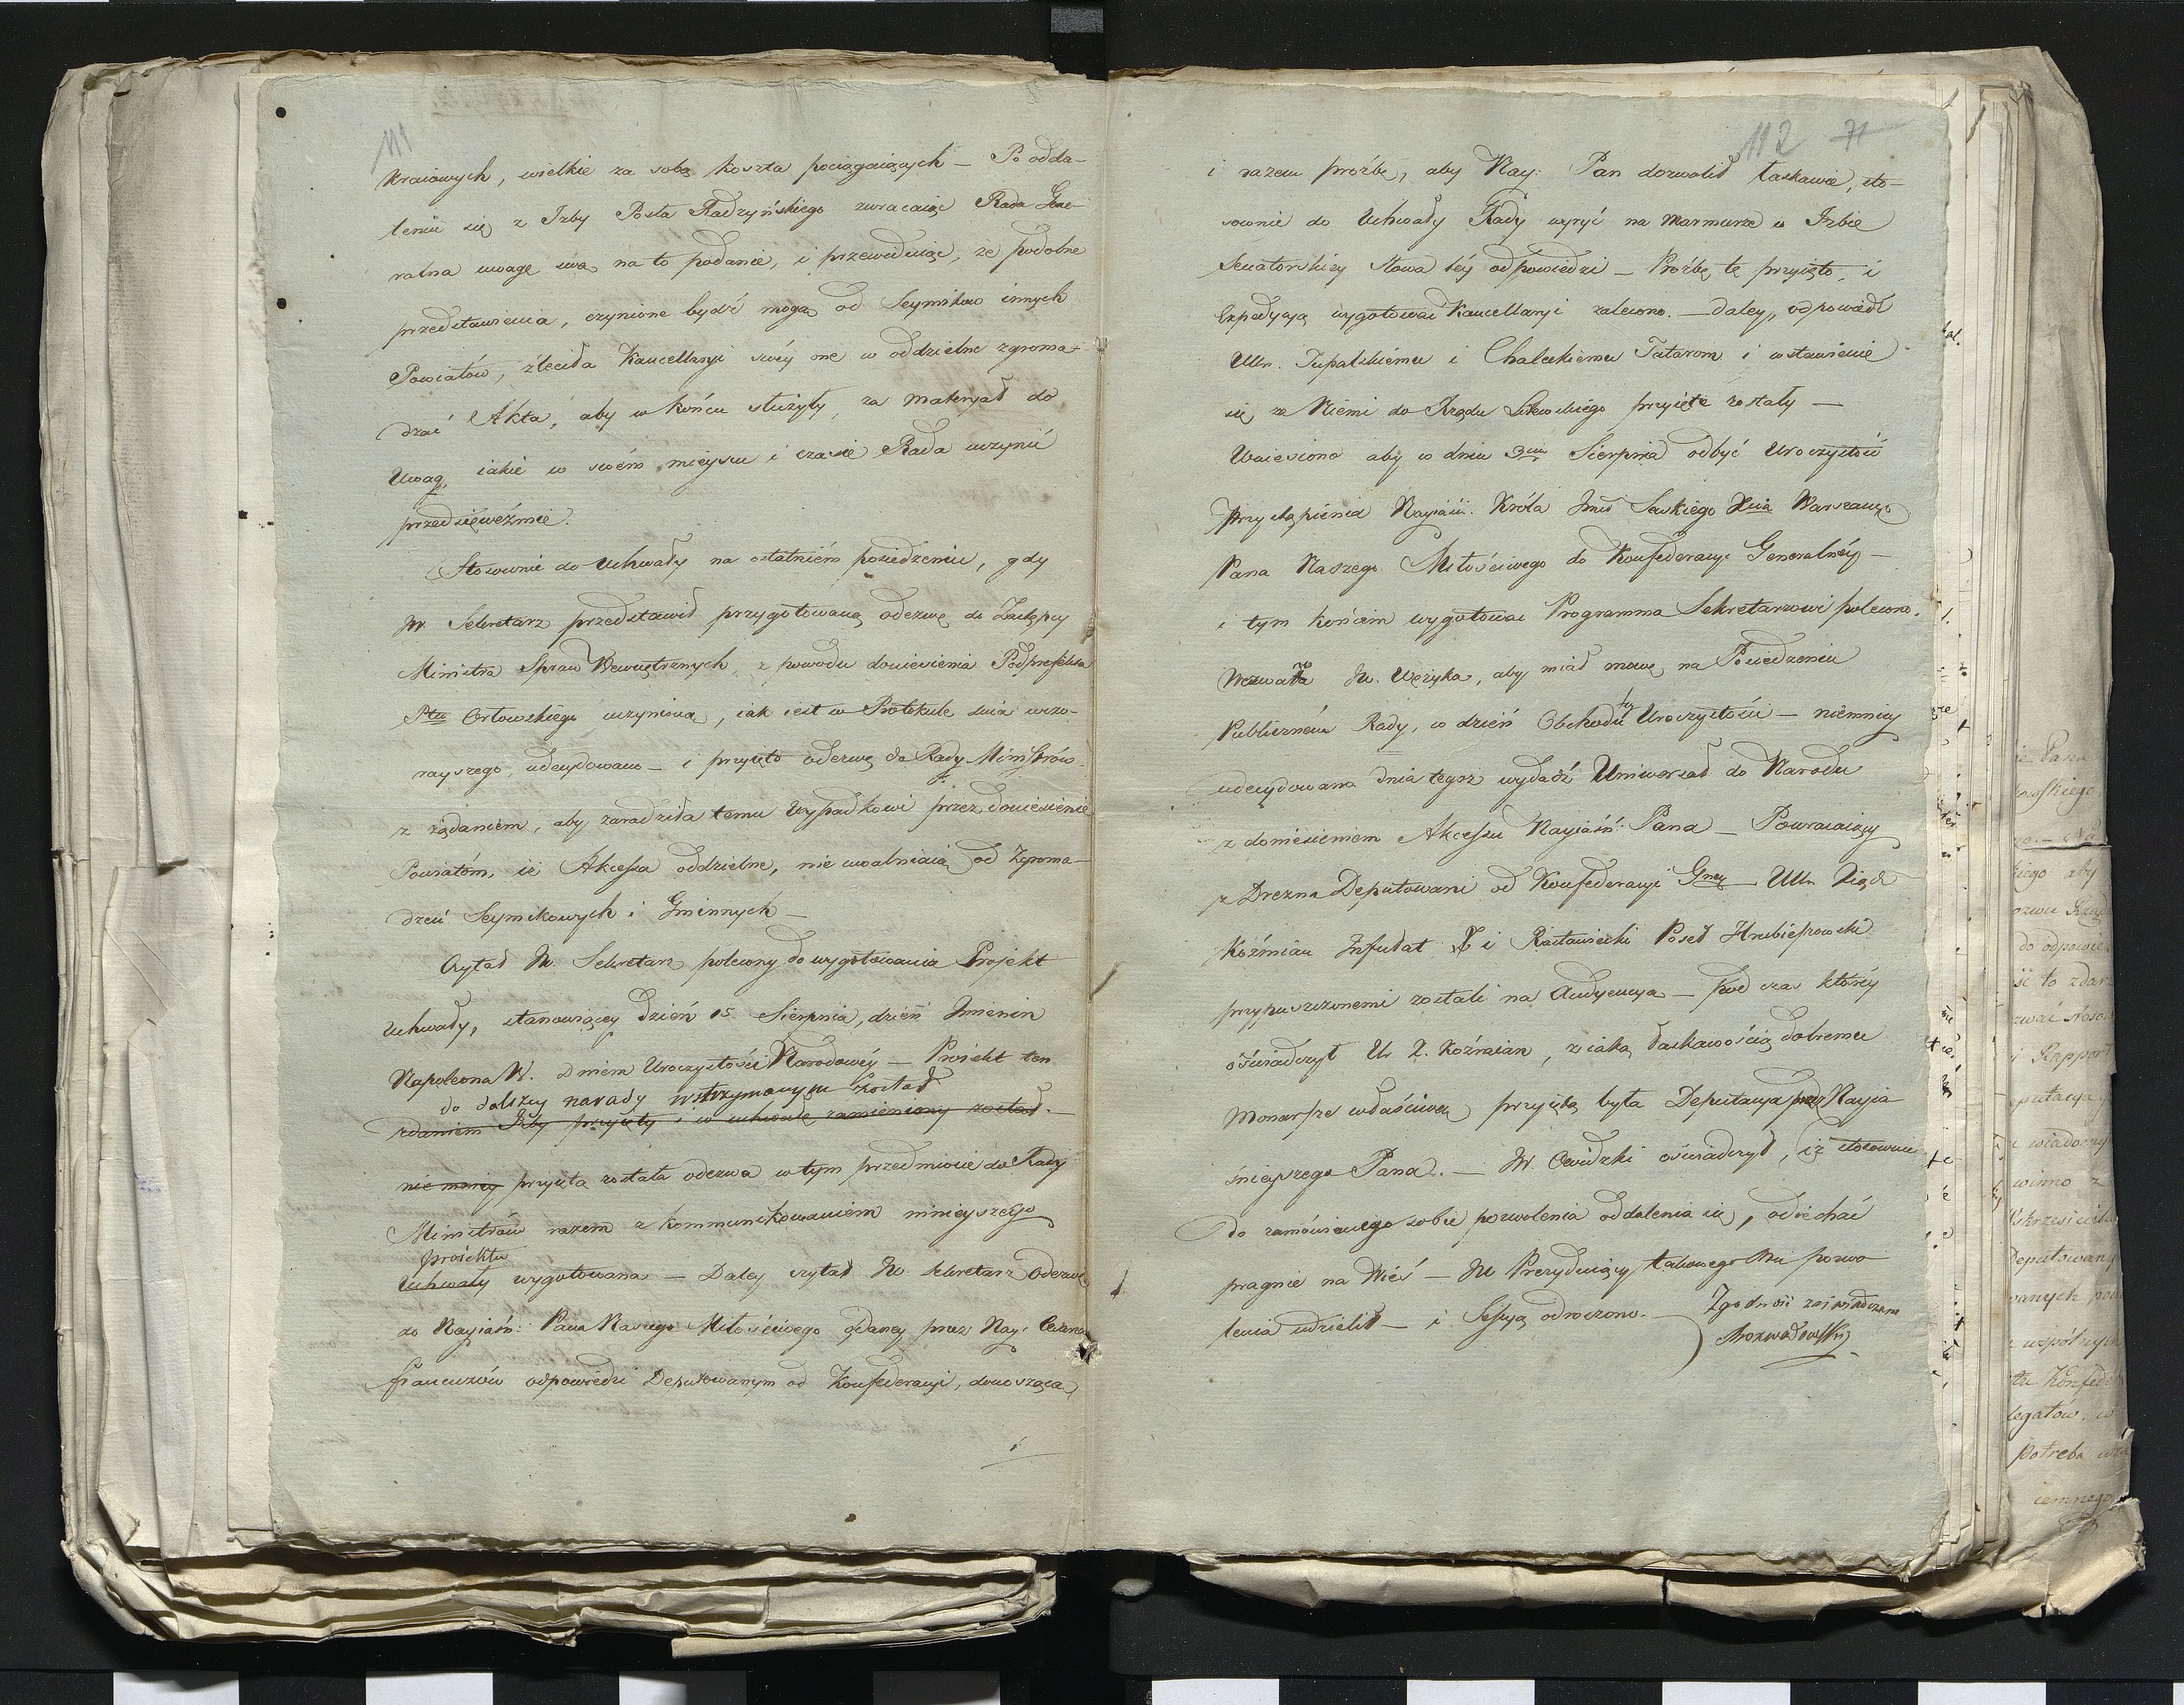 111
Kraiowych, wielkie za sobą koszta pociągaiących — Po odda-
leniu się z Izby Posła Radzyńskiego zwracaiąc Rada Gene-
ralna uwagę swą na to podanie, i przewiduiąc, że podobne
przedstawienia, czynione bydź mogą od Seymików innych
Powiatów, zleciła Kancellaryi swéy one w oddzielne zgroma-
dzać Akta, aby w końcu służyły za materyał do
Uwag, iakie w swém mieyscu i czasie Rada uczynić
przedsięweźmie.
Stosownie do Uchwały na ostatniém posiedzeniu, gdy
JW. Sekretarz przedstawił przygotowaną odezwę do Zastępcy
Ministra Spraw Wewnętrznych, z powodu doniesienia Podprefekta
Ptu Orłowskiego uczynioną, iak iest w Protokule dnia wczo-
rayszego, udecydowano — i przyięto odezwę do Rady Ministrów
z żądaniem, aby zaradziła temu wypadkowi przez doniesienie
Powiatóm, iż Akcessa oddzielne, nie uwalniaią od Zgroma-
dzeń Seymikowych i Gminnych —
Czytał JW. Sekretarz polecony do wygotowania Projekt
Uchwały, stanowiącey dzień 15 Sierpnia, dzień Imienin
Napoleona W. Dniem Uroczystości Narodowéy — Projekt ten
do dalszey narady wstrzymanym został
zdaniem Izby przyięty i w uchwałę zamieniony został. —
nie mniey przyięta została odezwa w tym przedmiocie do Rady
Ministrów razem z kommunikowaniem ninieyszego
proiektu
Uchwały wygotowana — Daley czytał JW. Sekretarz Odezwę
do Nayiaśń: Pana Naszego Miłościwego o daney przez Nay: Cesarza
francuzów odpowiedzi Deputowanym od Konfederacyi, donoszącą
i
112 71
i razem prośbę, aby Nay: Pan dozwolił łaskawie, sto-
sownie do Uchwały Rady wyryć na Marmurze w Izbie
Senatorskiey słowa téy odpowiedzi — Prośbę tę przyięto, i
Expedycyą wygotować Kancellaryi zalecono. — daley, odpowiedź
Ulm. Tupalskiému i Chaleckiému Tatarom i wstawienie
się za Niemi do Rządu Litewskiego przyięte zostały —
Wniesiono aby w dniu 3im Sierpnia odbyć Uroczystość
Przystąpienia Nayiaśń. Króla Jmci Saskiego Xcia Warszawgo
Pana Naszego Miłościwego do Konfederacyi Generalnéy —
i tym końcem wygotować Programma Sekretarzowi polecono.
Wezwano JW. Wężyka, aby miał mowę na Posiedzeniu
Publiczném Rady, w dzień Obchodu téy Uroczystości — niemniéy
udecydowano dnia tegoż wydadź Uniwersał do Narodu
z doniesieniem Akcessu Nayiaśń: Pana — Powracaiący
z Drezna Deputowani od Konfederacyi Gney — Ulm Xiądz
Koźmian Infułat i Rastawiecki Poseł Hrubieszowski
przypuszczonemi zostali na Audyencyą — pod czas któréy
oświadczył Ur X. Koźmian, z iaką łaskawością dobremu
Monarsze właściwą przyiętą była Deputacya przez Nayia
śnieyszego Pana. — JW. Owidzki oświadczył, iż stosownie
do zamówionego sobie pozwolenia oddalenia się, odiechać
pragnie na Wieś — JW Prezyduiący takowego Mu pozwo
lenia udzielił — i Sessyą odroczono. — Zgodność zaświadczam
Mrozwadowski